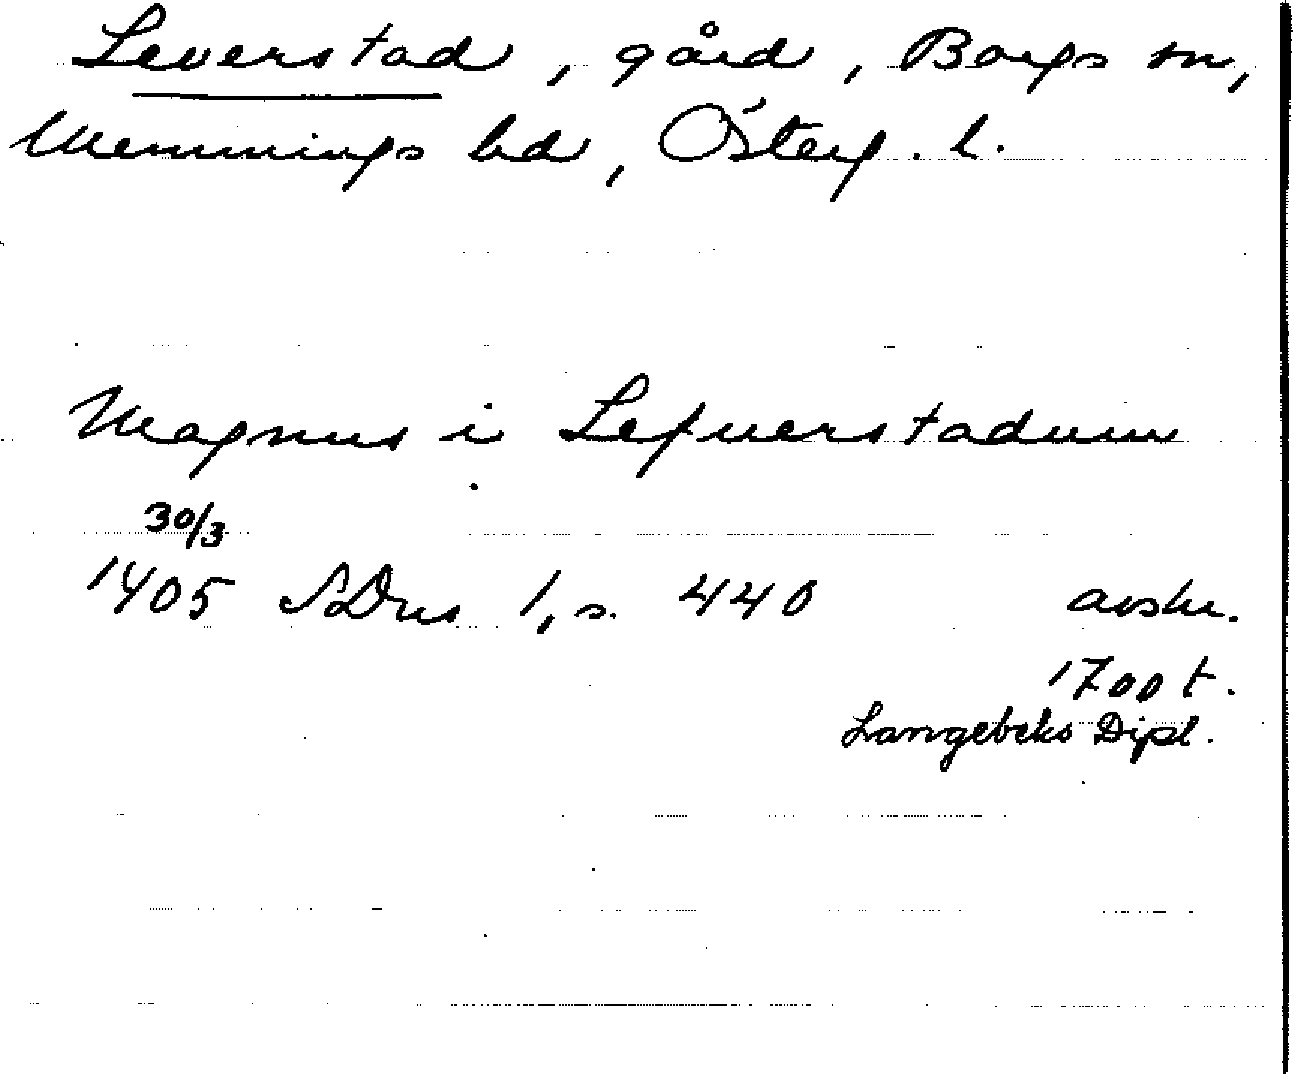 Leverstad, gård, Borgs sn,
Memmings hd, Österg. l.
Magnus i Lefuerstadum
30/3
1405 SDns 1, s. 440 avskr.
1700 t.
Langebeks Dipl.